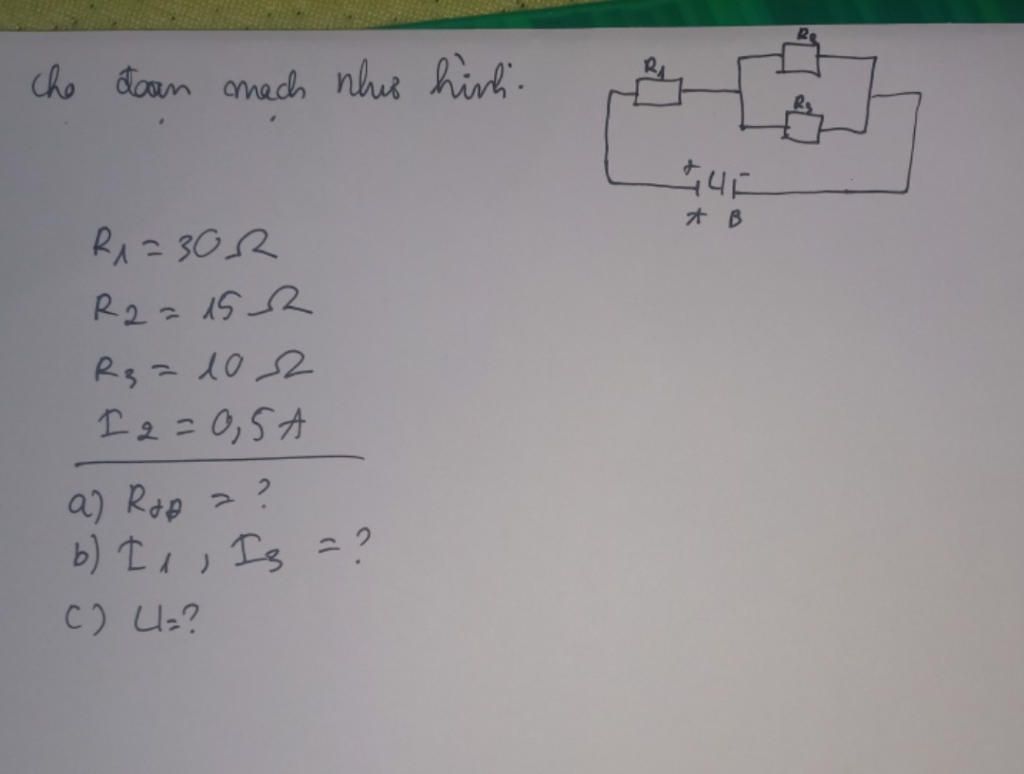 cho đoạn mạch như hình.
R1
R2
R3
+ U -
A B
R1 = 30 Ω
R2 = 15 Ω
R3 = 10 Ω
I2 = 0,5 A
a) RAB = ?
b) I1 , I3 = ?
c) U=?